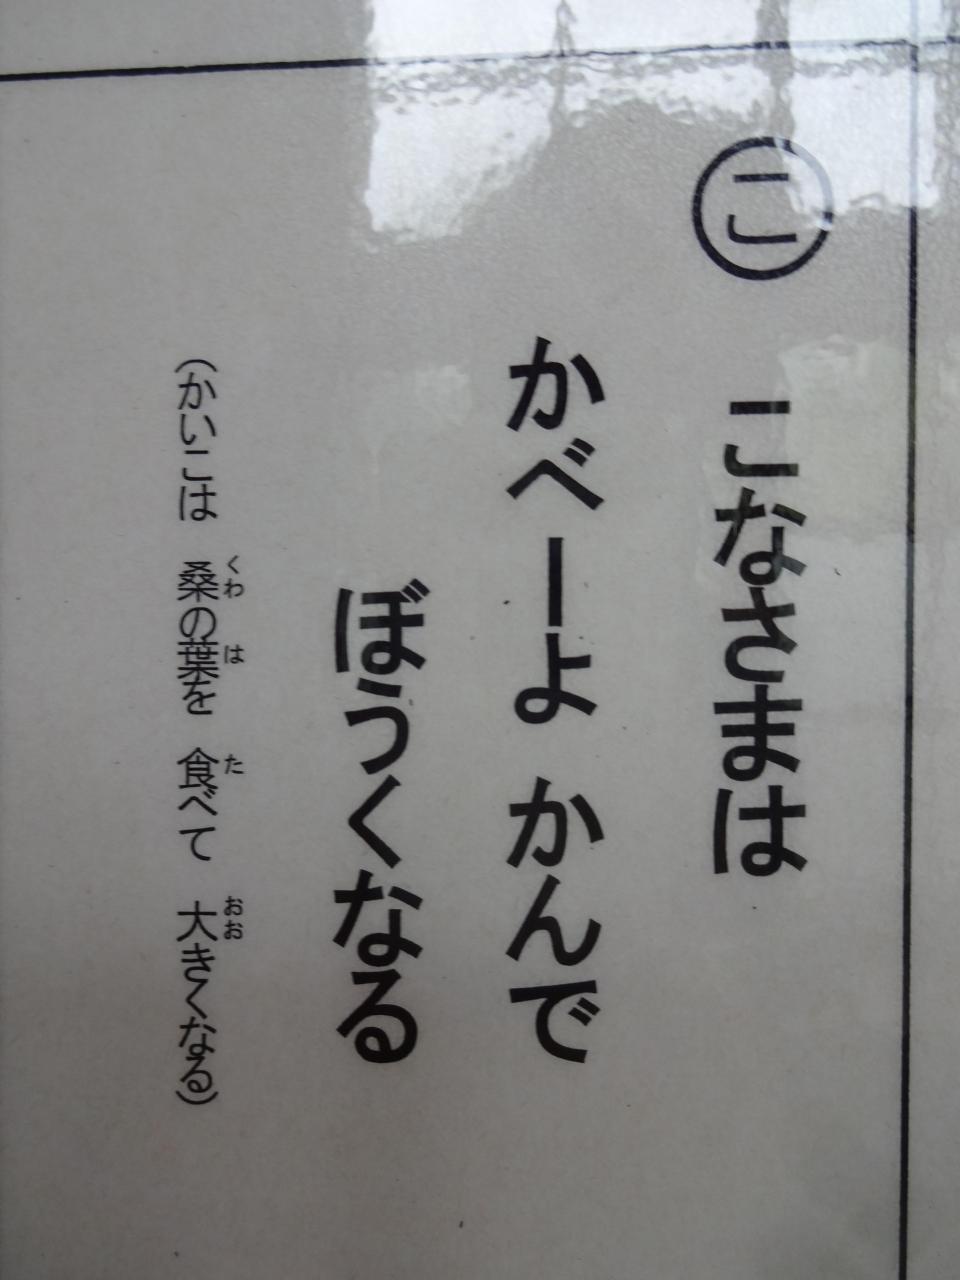 こ
こなさまは
かべーよ かんで
ぼうくなる
(かいこは 桑の葉を 食べて 大きくなる)
くわ は た おお